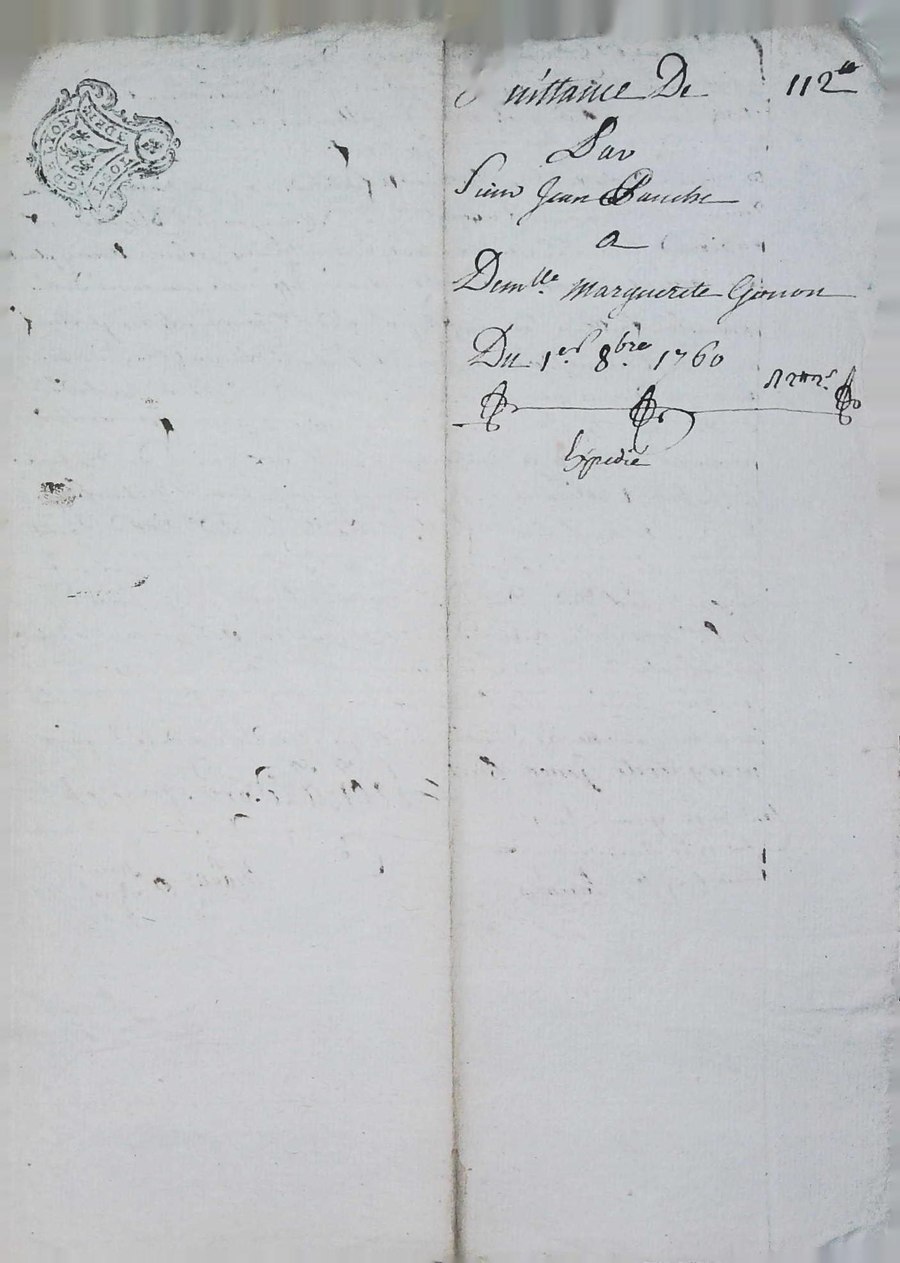 uittance De 112ᵗᵗ
Par
Sieur Jean Bauche
a
Demlle. Marguerite Gonon
Du 1er. 8bre. 1760
R 2ᵗᵗ 2s
Expedié